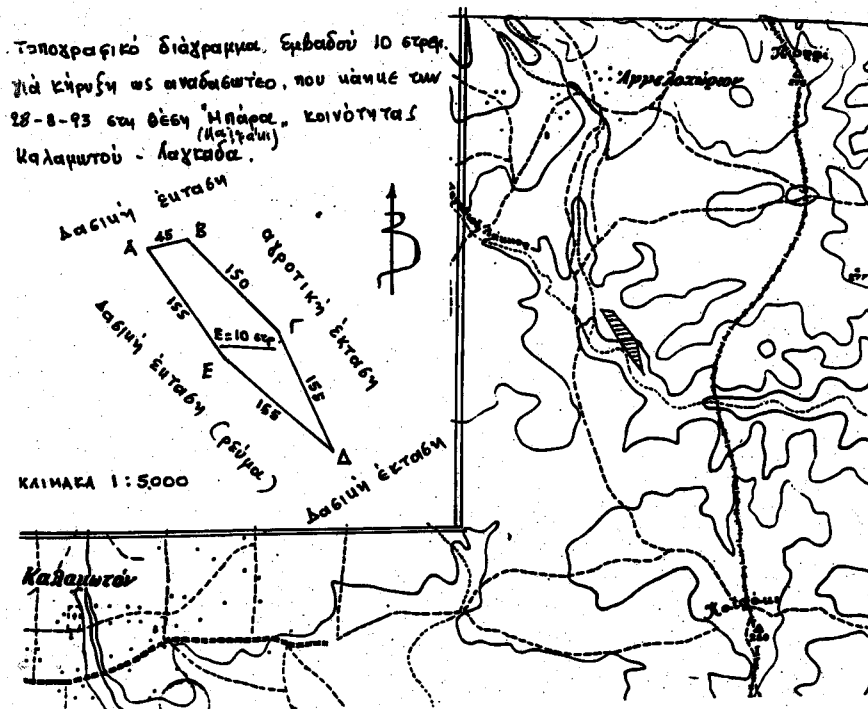 Τοπογραφικό διάγραμμα, Εμβαδού 10 στρεμ.
γιά κήρυξη ως αναδασωτέο, που κάηκε την
28-8-93 στη θέση "Μπάρα„ κοινότητας
(Καϊτζάκι)
Καλαμωτού - Λαγκαδα.
Δασική έκταση
A 45 B
αγροτική έκταση
150
155
Γ
E=10 στρ.
E
155
155
Δ
Δασική έκταση (ρεύμα)
Δασική έκταση
ΚΛΙΜΑΚΑ 1:5.000
Β
Ἀγγελοχώριον
Λάκκος
Καλαμωτόν